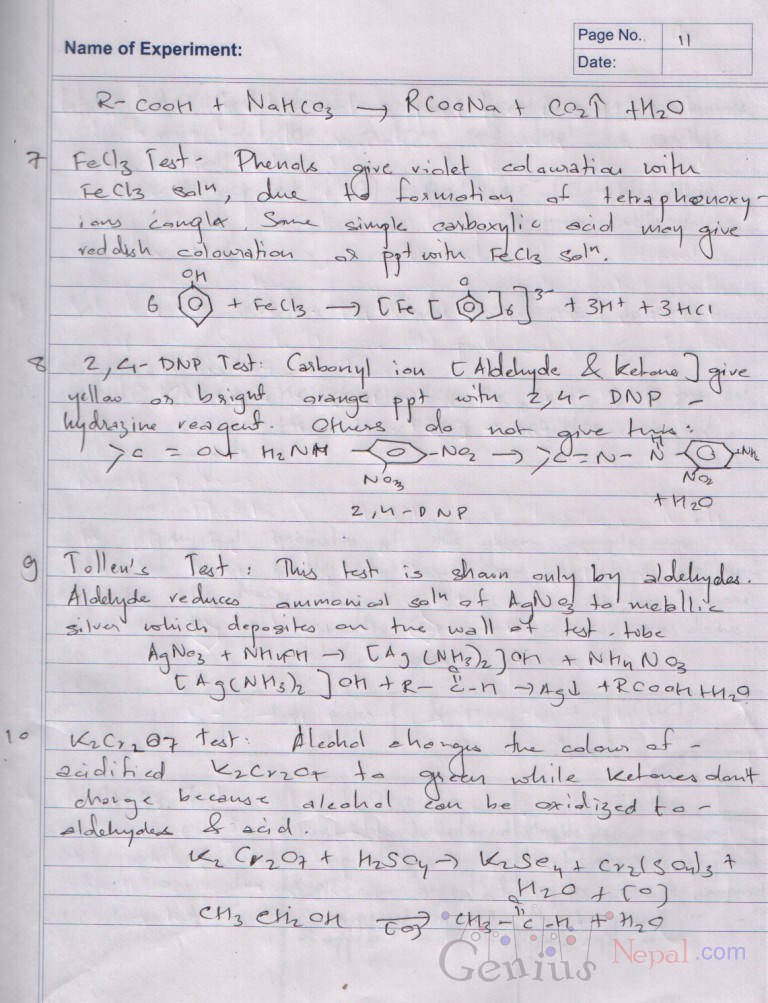 Name of Experiment:
Page No.. 11
Date:
R- COOH + NaHCO3 → RCOONa + CO2↑ + H2O
7 FeCl3 Test - Phenols give violet colouration with
FeCl3 soln, due to formation of tetraphenoxy-
ions complex. Some simple carboxylic acid may give
reddish colouration or ppt with FeCl3 soln.
OH O
6 + FeCl3 → [Fe [ ]6]3- + 3H+ + 3HCl
8 2,4- DNP Test: Carbonyl ion [Aldehyde & Ketone] give
yellow or bright orange ppt with 2,4- DNP -
hydrazine reagent. Others do not give this:
>C = O + H2NNH -NO2 → >C=N- N H -NH2
NO3 NO2
2,4-DNP + H2O
9 Tollen's Test: This test is shown only by aldehydes.
Aldehyde reduces ammonical soln of AgNO3 to metallic
silver which deposites on the wall of test-tube
AgNO3 + NH4OH → [Ag (NH3)2]OH + NH4NO3
[Ag(NH3)2]OH + R- C-H → Ag↓ + RCOOH + H2O
O
10 K2Cr2O7 test: Alcohol changes the colour of -
acidified K2Cr2O7 to green while Ketones dont
change because alcohol can be oxidized to -
aldehydes & acid.
K2Cr2O7 + H2SO4 → K2SO4 + Cr2(SO4)3 +
H2O + [O]
CH3CH2OH → [O] CH3-C-H + H2O
O
Genius Nepal.com